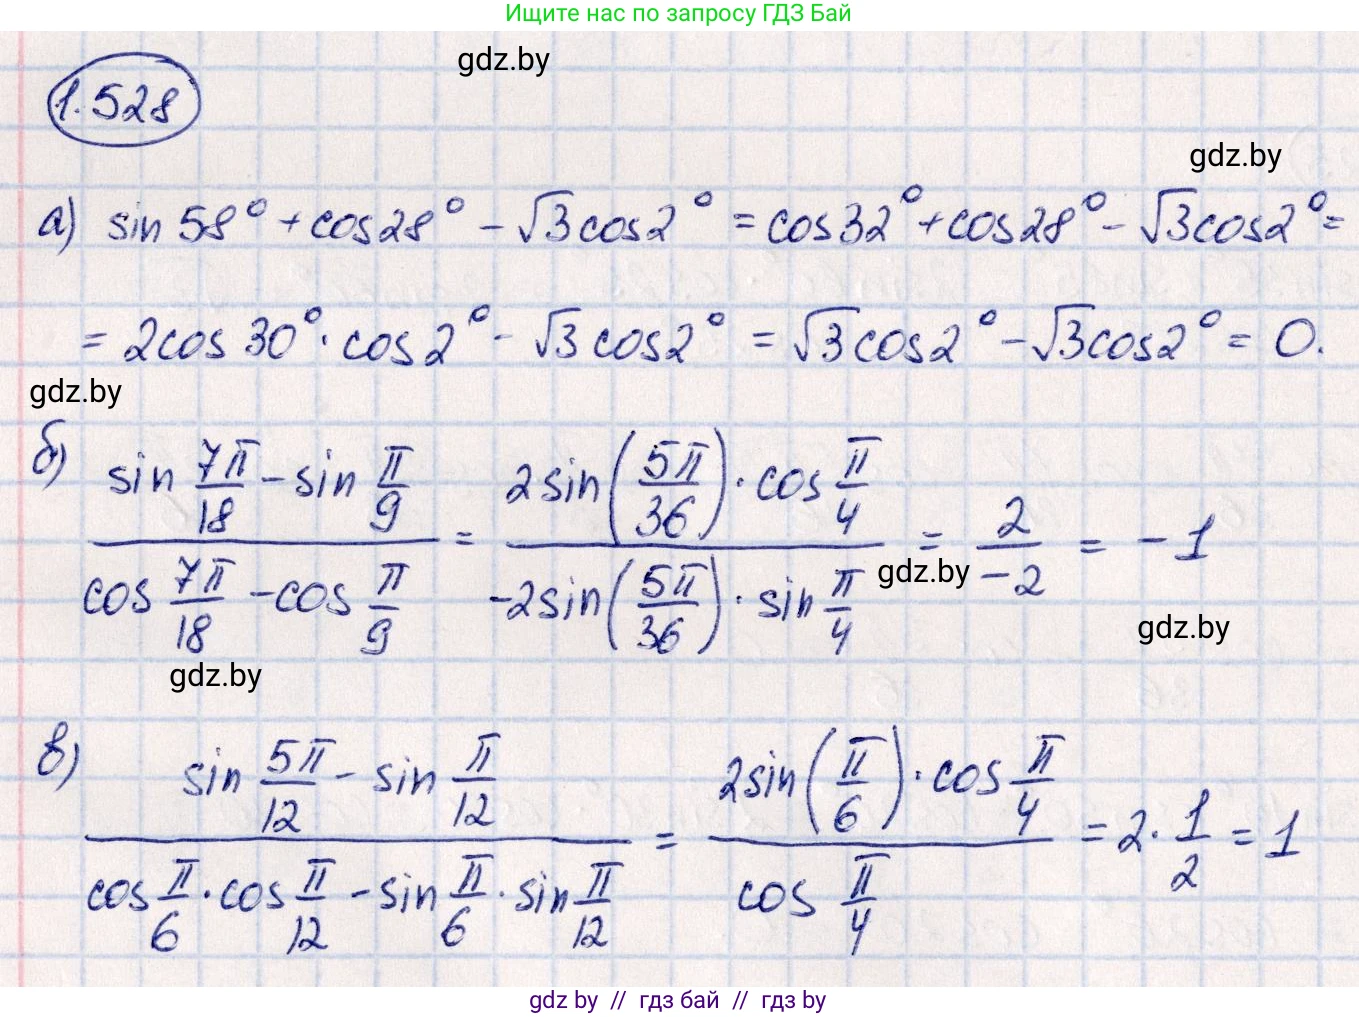 Ищите нас по запросу ГДЗ Бай
gdz.by
1.528
gdz.by
а) sin 58° + cos 28° - √3 cos 2° = cos 32° + cos 28° - √3 cos 2° =
= 2 cos 30° · cos 2° - √3 cos 2° = √3 cos 2° - √3 cos 2° = 0.
gdz.by
б) (sin 7π/18 - sin π/9) / (cos 7π/18 - cos π/9) = (2 sin(5π/36) · cos π/4) / (-2 sin(5π/36) · sin π/4) = 2/-2 = -1
gdz.by
gdz.by
gdz.by
в) (sin 5π/12 - sin π/12) / (cos π/6 · cos π/12 - sin π/6 · sin π/12) = (2 sin(π/6) · cos π/4) / (cos π/4) = 2 · 1/2 = 1
gdz by // гдз бай // гдз by